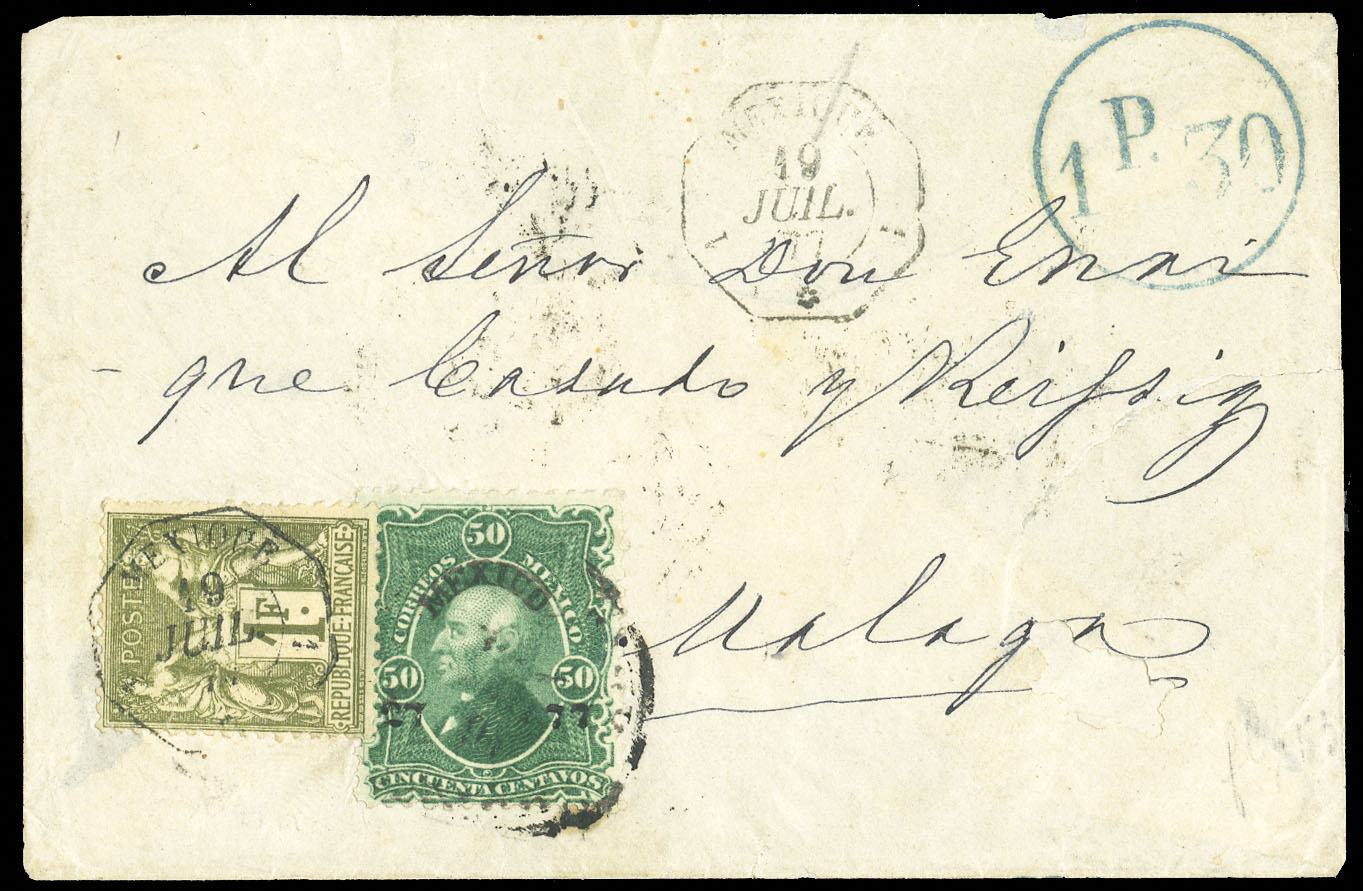 1 P. 30
MEXIQUE
19
JUIL.
Al Señor Don Enri
- que Casado y Reifssig
Malaga
POSTE
1F.
REPUBLIQUE·FRANÇAISE
MEXIQUE
19
JUIL.
50
CORREOS MEXICO
MEXICO
50 50
27 77
CINCUENTA CENTAVOS